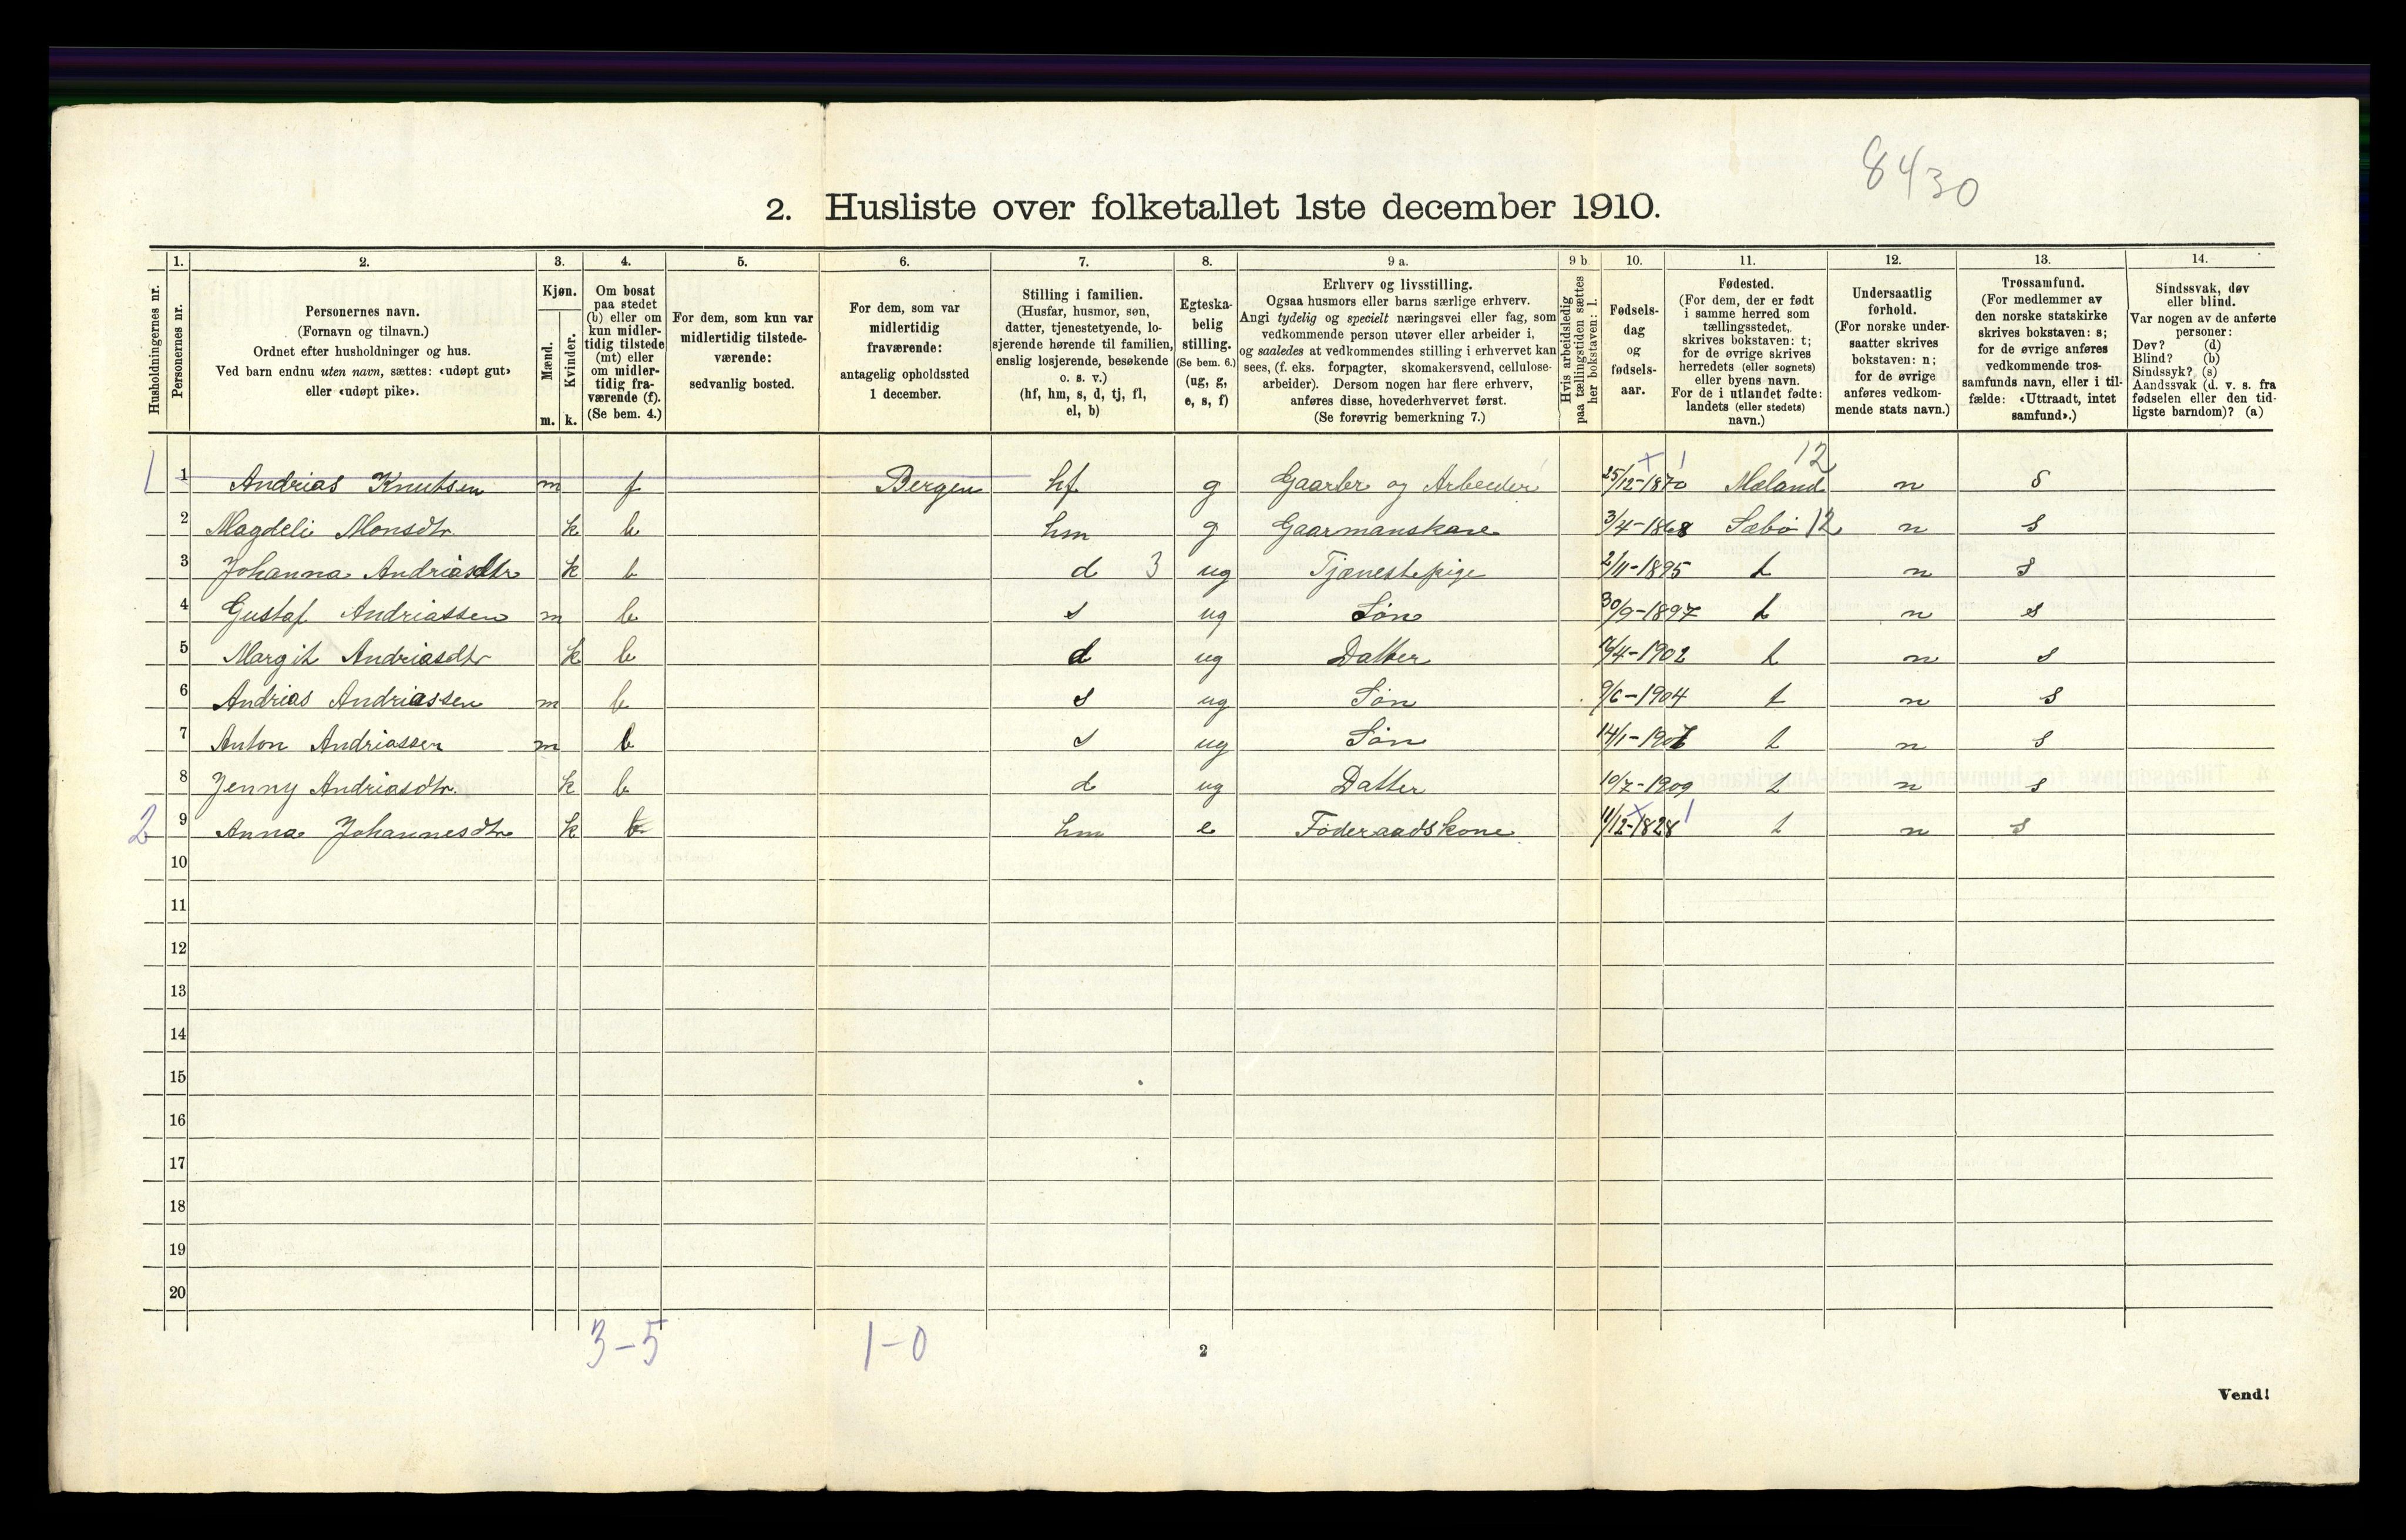 8430
2. Husliste over folketallet 1ste december 1910.
Husholdningernes nr.
1. Personernes nr.
2. Personernes navn.
(Fornavn og tilnavn.)
Ordnet efter husholdninger og hus.
Ved barn endnu uten navn, sættes: «udøpt gut»
eller «udøpt pike».
3. Kjøn.
Mænd. m.
Kvinder. k.
4. Om bosat
paa stedet
(b) eller om
kun midler-
tidig tilstede
(mt) eller
om midler-
tidig fra-
værende (f).
(Se bem. 4.)
5. For dem, som kun var
midlertidig tilstede-
værende:
sedvanlig bosted.
6. For dem, som var
midlertidig
fraværende:
antagelig opholdssted
1 december.
7. Stilling i familien.
(Husfar, husmor, søn,
datter, tjenestetyende, lo-
sjerende hørende til familien,
enslig losjerende, besøkende
o. s. v.)
(hf, hm, s, d, tj, fl,
el, b)
8. Egteska-
belig
stilling.
(Se bem. 6.)
(ug, g,
e, s, f)
9 a. Erhverv og livsstilling.
Ogsaa husmors eller barns særlige erhverv.
Angi tydelig og specielt næringsvei eller fag, som
vedkommende person utøver eller arbeider i,
og saaledes at vedkommendes stilling i erhvervet kan
sees, (f. eks. forpagter, skomakersvend, cellulose-
arbeider). Dersom nogen har flere erhverv,
anføres disse, hovederhvervet først.
(Se forøvrig bemerkning 7.)
9 b. Hvis arbeidsledig
paa tællingstiden sættes
her bokstaven: l.
10. Fødsels-
dag
og
fødsels-
aar.
11. Fødested.
(For dem, der er født
i samme herred som
tællingsstedet,
skrives bokstaven: t;
for de øvrige skrives
herredets (eller sognets)
eller byens navn.
For de i utlandet fødte:
landets (eller stedets)
navn.)
12. Undersaatlig
forhold.
(For norske under-
saatter skrives
bokstaven: n;
for de øvrige
anføres vedkom-
mende stats navn.)
13. Trossamfund.
(For medlemmer av
den norske statskirke
skrives bokstaven: s;
for de øvrige anføres
vedkommende tros-
samfunds navn, eller i til-
fælde: «Uttraadt, intet
samfund».)
14. Sindssvak, døv
eller blind.
Var nogen av de anførte
personer:
Døv? (d)
Blind? (b)
Sindssyk? (s)
Aandssvak (d. v. s. fra
fødselen eller den tid-
ligste barndom)? (a)
12
1 1 Andrias Knutsen m f Bergen hf g Gaarbr og Arbeider 25/12-1870 Mæland n s
2 Magdeli Monsdtr. k b hm g Gaarmanskone 3/4-1868 Sæbø 12 n s
3 Johanna Andriasdtr k b d 3 ug Tjænestepige 2/11-1895 t n s
4 Gustaf Andriassen m b s ug Søn 30/9-1897 t n s
5 Margit Andriasdtr k b d ug Datter /4-1902 t n s
6 Andrias Andriassen m b s ug Søn 9/6-1904 t n s
7 Anton Andriassen m b s ug Søn 14/1-1907 t n s
8 Jenny Andriasdtr. k b d ug Datter 10/7-1909 t n s
2 9 Anna Johannesdtr k b hm e Føderaadskone 11/12-1828 t n s
10
11
12
13
14
15
16
17
18
19
20
3-5 1-0
2
Vend!